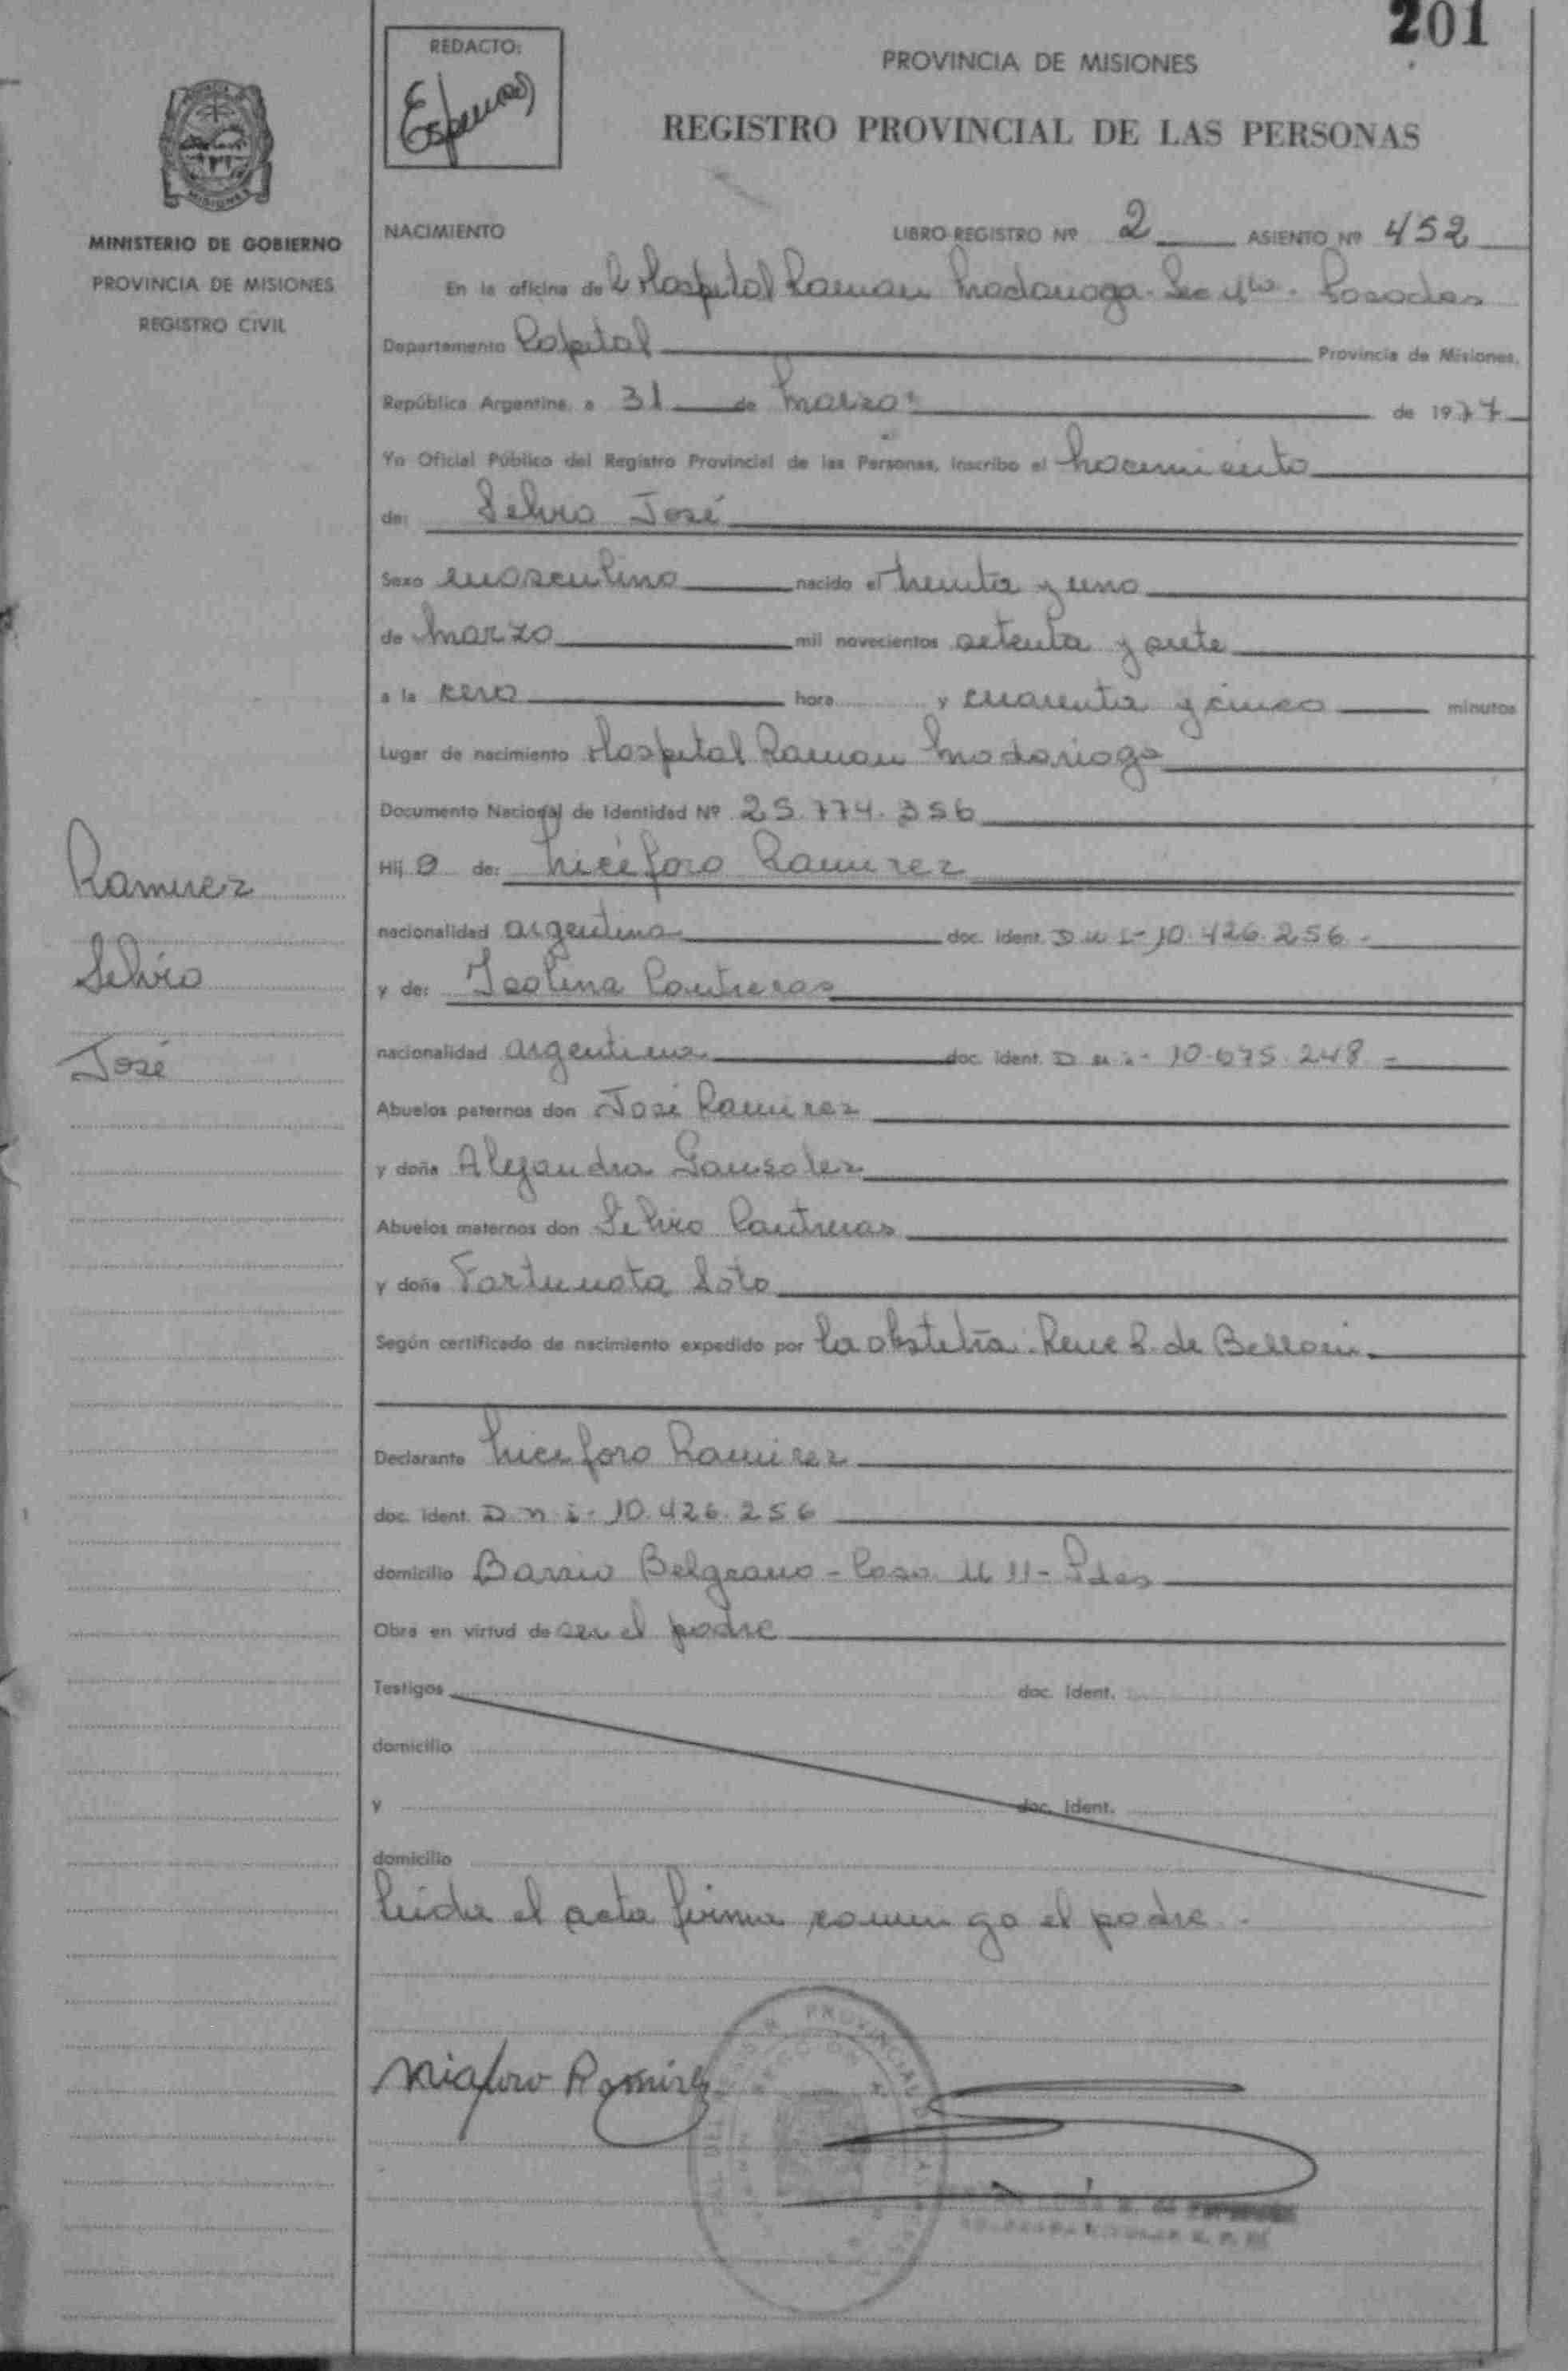 201
REDACTO:
PROVINCIA DE MISIONES
REGISTRO PROVINCIAL DE LAS PERSONAS
MISIONES
MINISTERIO DE GOBIERNO
PROVINCIA DE MISIONES
REGISTRO CIVIL
NACIMIENTO LIBRO REGISTRO Nº 2 ASIENTO Nº 452
En la oficina del Hospital Ramon Madariaga - Sec 4ta - Posadas
Departamento Capital Provincia de Misiones,
República Argentina, a 31 de Marzo de 1977
Yo Oficial Público del Registro Provincial de las Personas, inscribo el Nacimiento
de: Silvio José
Sexo masculino nacido el treinta y uno
de Marzo mil novecientos setenta y siete
a la cero hora y cuarenta y cinco minutos
Lugar de nacimiento Hospital Ramon Madariaga
Documento Nacional de Identidad Nº 25.774.356
Hij o de: Nicéforo Ramirez
nacionalidad argentina doc. ident. D n i - 10.426.256 -
y de: Isolina Contreras
nacionalidad argentina doc. ident. D n i - 10.675.248 -
Abuelos paternos don José Ramirez
y doña Alejandra Gonsalez
Abuelos maternos don Silvio Contreras
y doña Fortunata Soto
Según certificado de nacimiento expedido por la obstetra. Rene de
Declarante Niceforo Ramirez
doc. ident. D n i - 10.426.256
domicilio Barrio Belgrano - Casa 11 - Pdas
Obra en virtud de ser el padre
Testigos doc. ident.
domicilio
y doc. ident.
domicilio
Leida el acta firma conmigo el padre -
Niceforo Ramirez
Ramirez
Silvio
José